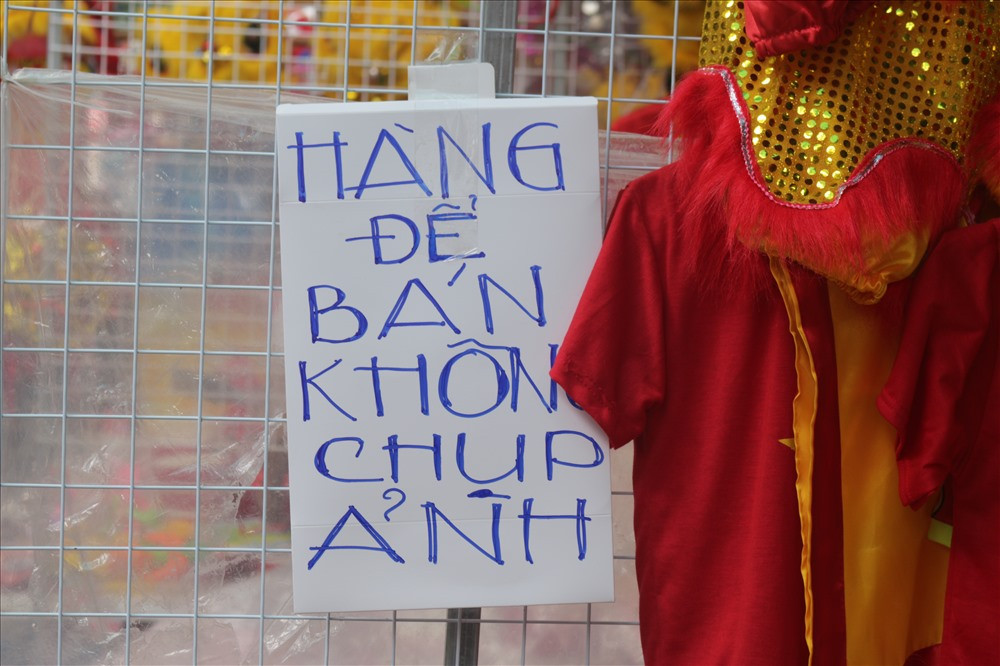 HÀNG
ĐỂ
BÁN
KHÔNG
CHỤP
ẢNH